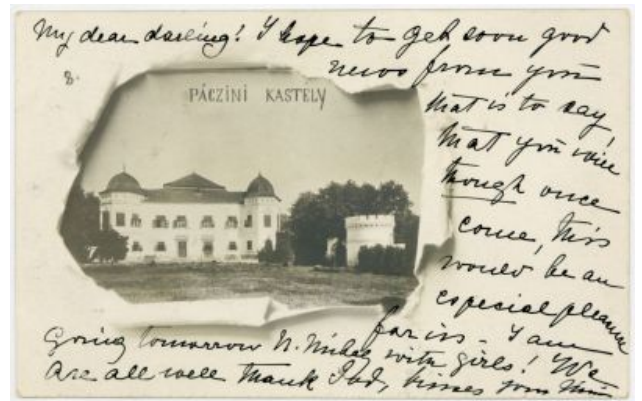 My dear darling! I hope to get soon good
news from you
8.
PÁCZINI KASTELY
that is to say,
that you will
though once
come, this
would be an
especial pleasure
for us - I am
Going tomorrow N. Mihály with girls! We
are all well thank God, kisses your